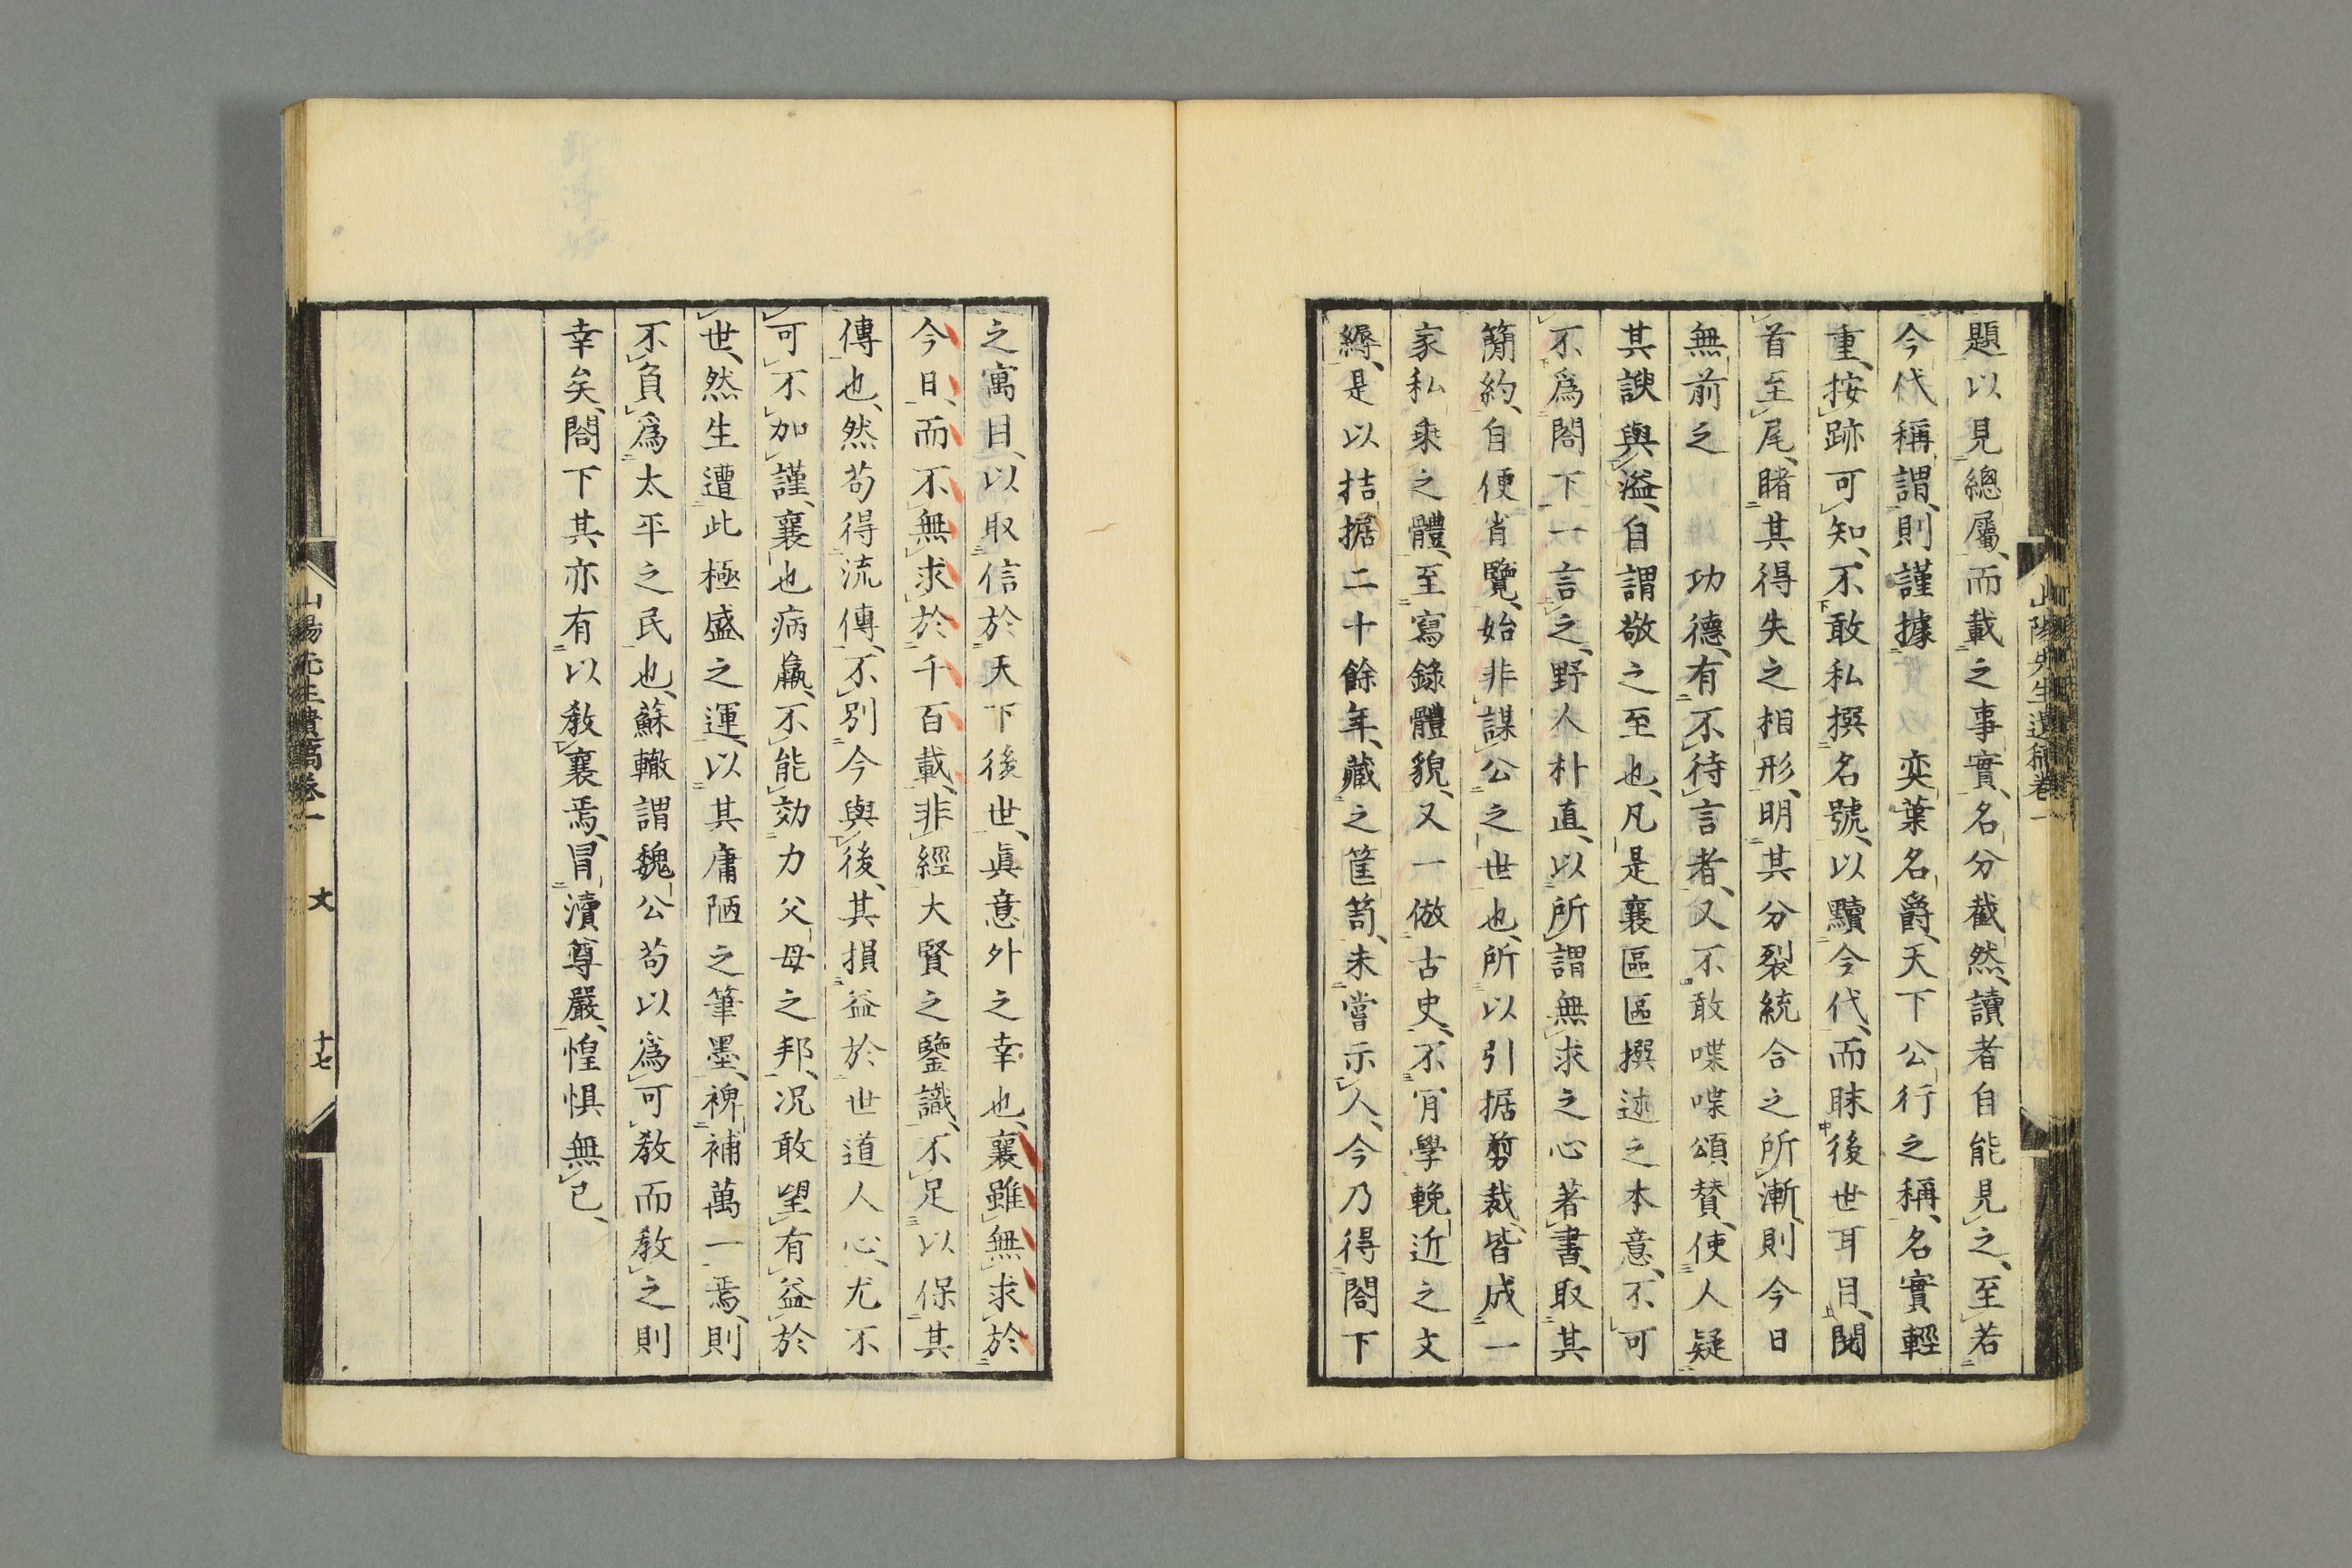 題以見總屬、而載之事實、名分截然、讀者自能見之、至若
今代稱謂、則謹據　奕葉名爵、天下公行之稱、名實輕
重、按跡可知、不敢私撰名號、以黷今代、而眯後世耳目、閱
首至尾、睹其得失之相形、明其分裂統合之所漸、則今日
無前之　功德、有不待言者、又不敢喋喋頌賛、使人疑
其諛與溢、自謂敬之至也、凡是襄區區撰述之本意、不可
不爲閤下一言之、野人朴直、以所謂無求之心著書、取其
簡約、自便省覽、始非謀公之世也、所以引据剪裁、皆成一
家私乘之體、至寫錄體貌、又一倣古史、不肎學輓近之文
縟、是以拮据二十餘年、藏之筐笥、未嘗示人、今乃得閤下
之寓目、以取信於天下後世、眞意外之幸也、襄雖無求於
今日、而不無求於千百載、非經大賢之鑒識、不足以保其
傳也、然苟得流傳、不別今與後、其損益於世道人心、尤不
可不加謹、襄也病羸、不能効力父母之邦、況敢望有益於
世、然生遭此極盛之運、以其庸陋之筆墨、裨補萬一焉、則
不負爲太平之民也、蘇轍謂魏公苟以爲可敎而敎之則
幸矣、閤下其亦有以敎襄焉、冒瀆尊嚴、惶惧無已、
山陽先生遺稿卷一　文　十七